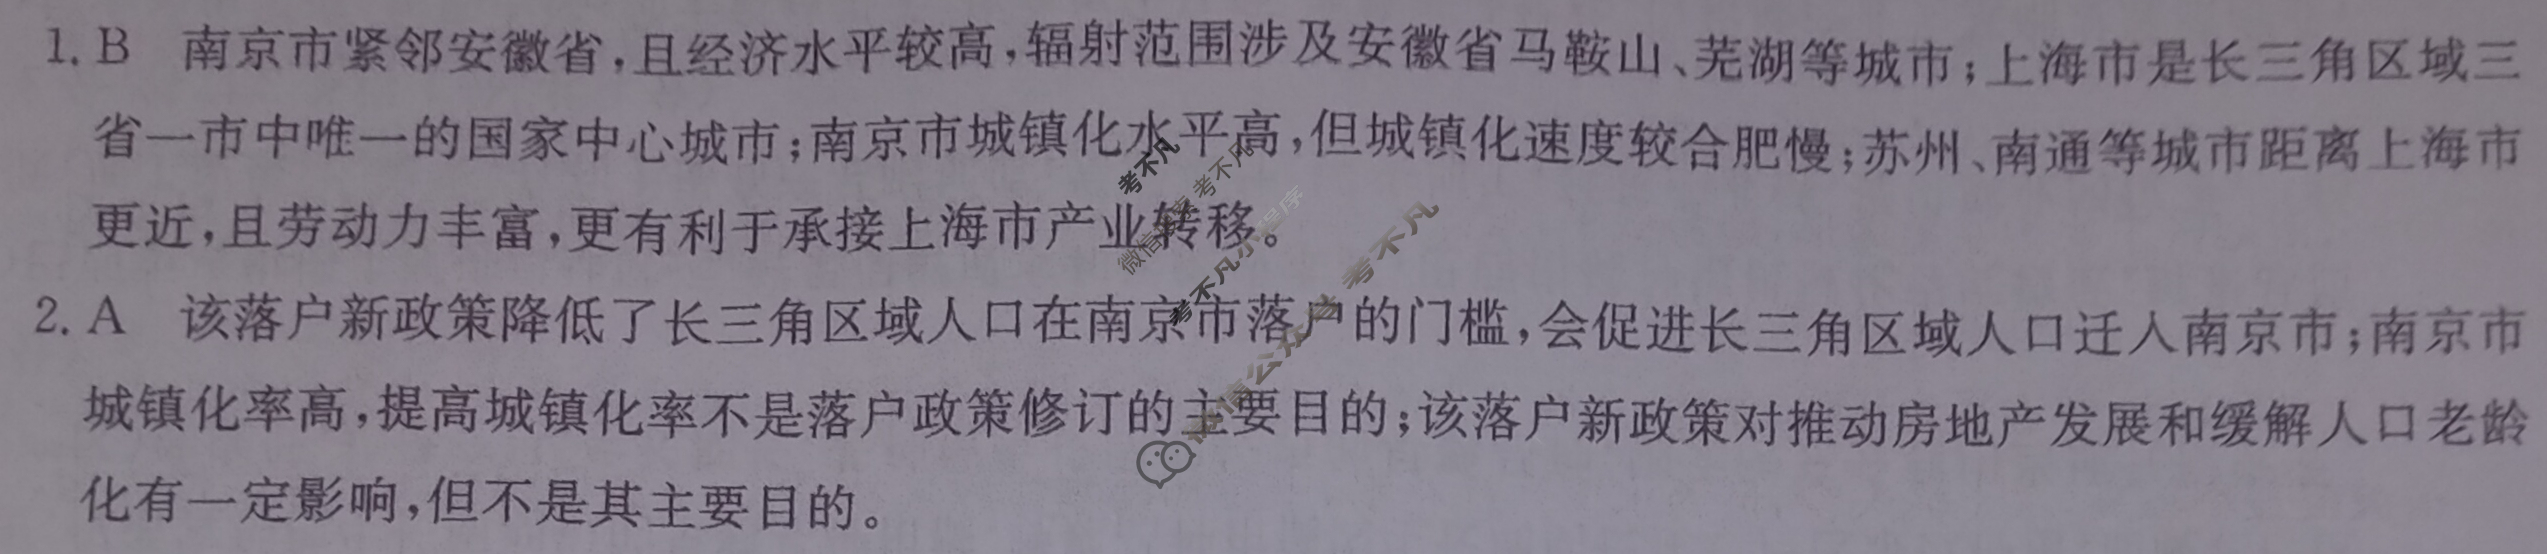 1. B 南京市紧邻安徽省,且经济水平较高,辐射范围涉及安徽省马鞍山、芜湖等城市;上海市是长三角区域三
省一市中唯一的国家中心城市;南京市城镇化水平高,但城镇化速度较合肥慢;苏州、南通等城市距离上海市
更近,且劳动力丰富,更有利于承接上海市产业转移。
2. A 该落户新政策降低了长三角区域人口在南京市落户的门槛,会促进长三角区域人口迁入南京市;南京市
城镇化率高,提高城镇化率不是落户政策修订的主要目的;该落户新政策对推动房地产发展和缓解人口老龄
化有一定影响,但不是其主要目的。
考不凡
考不凡小程序
考不凡